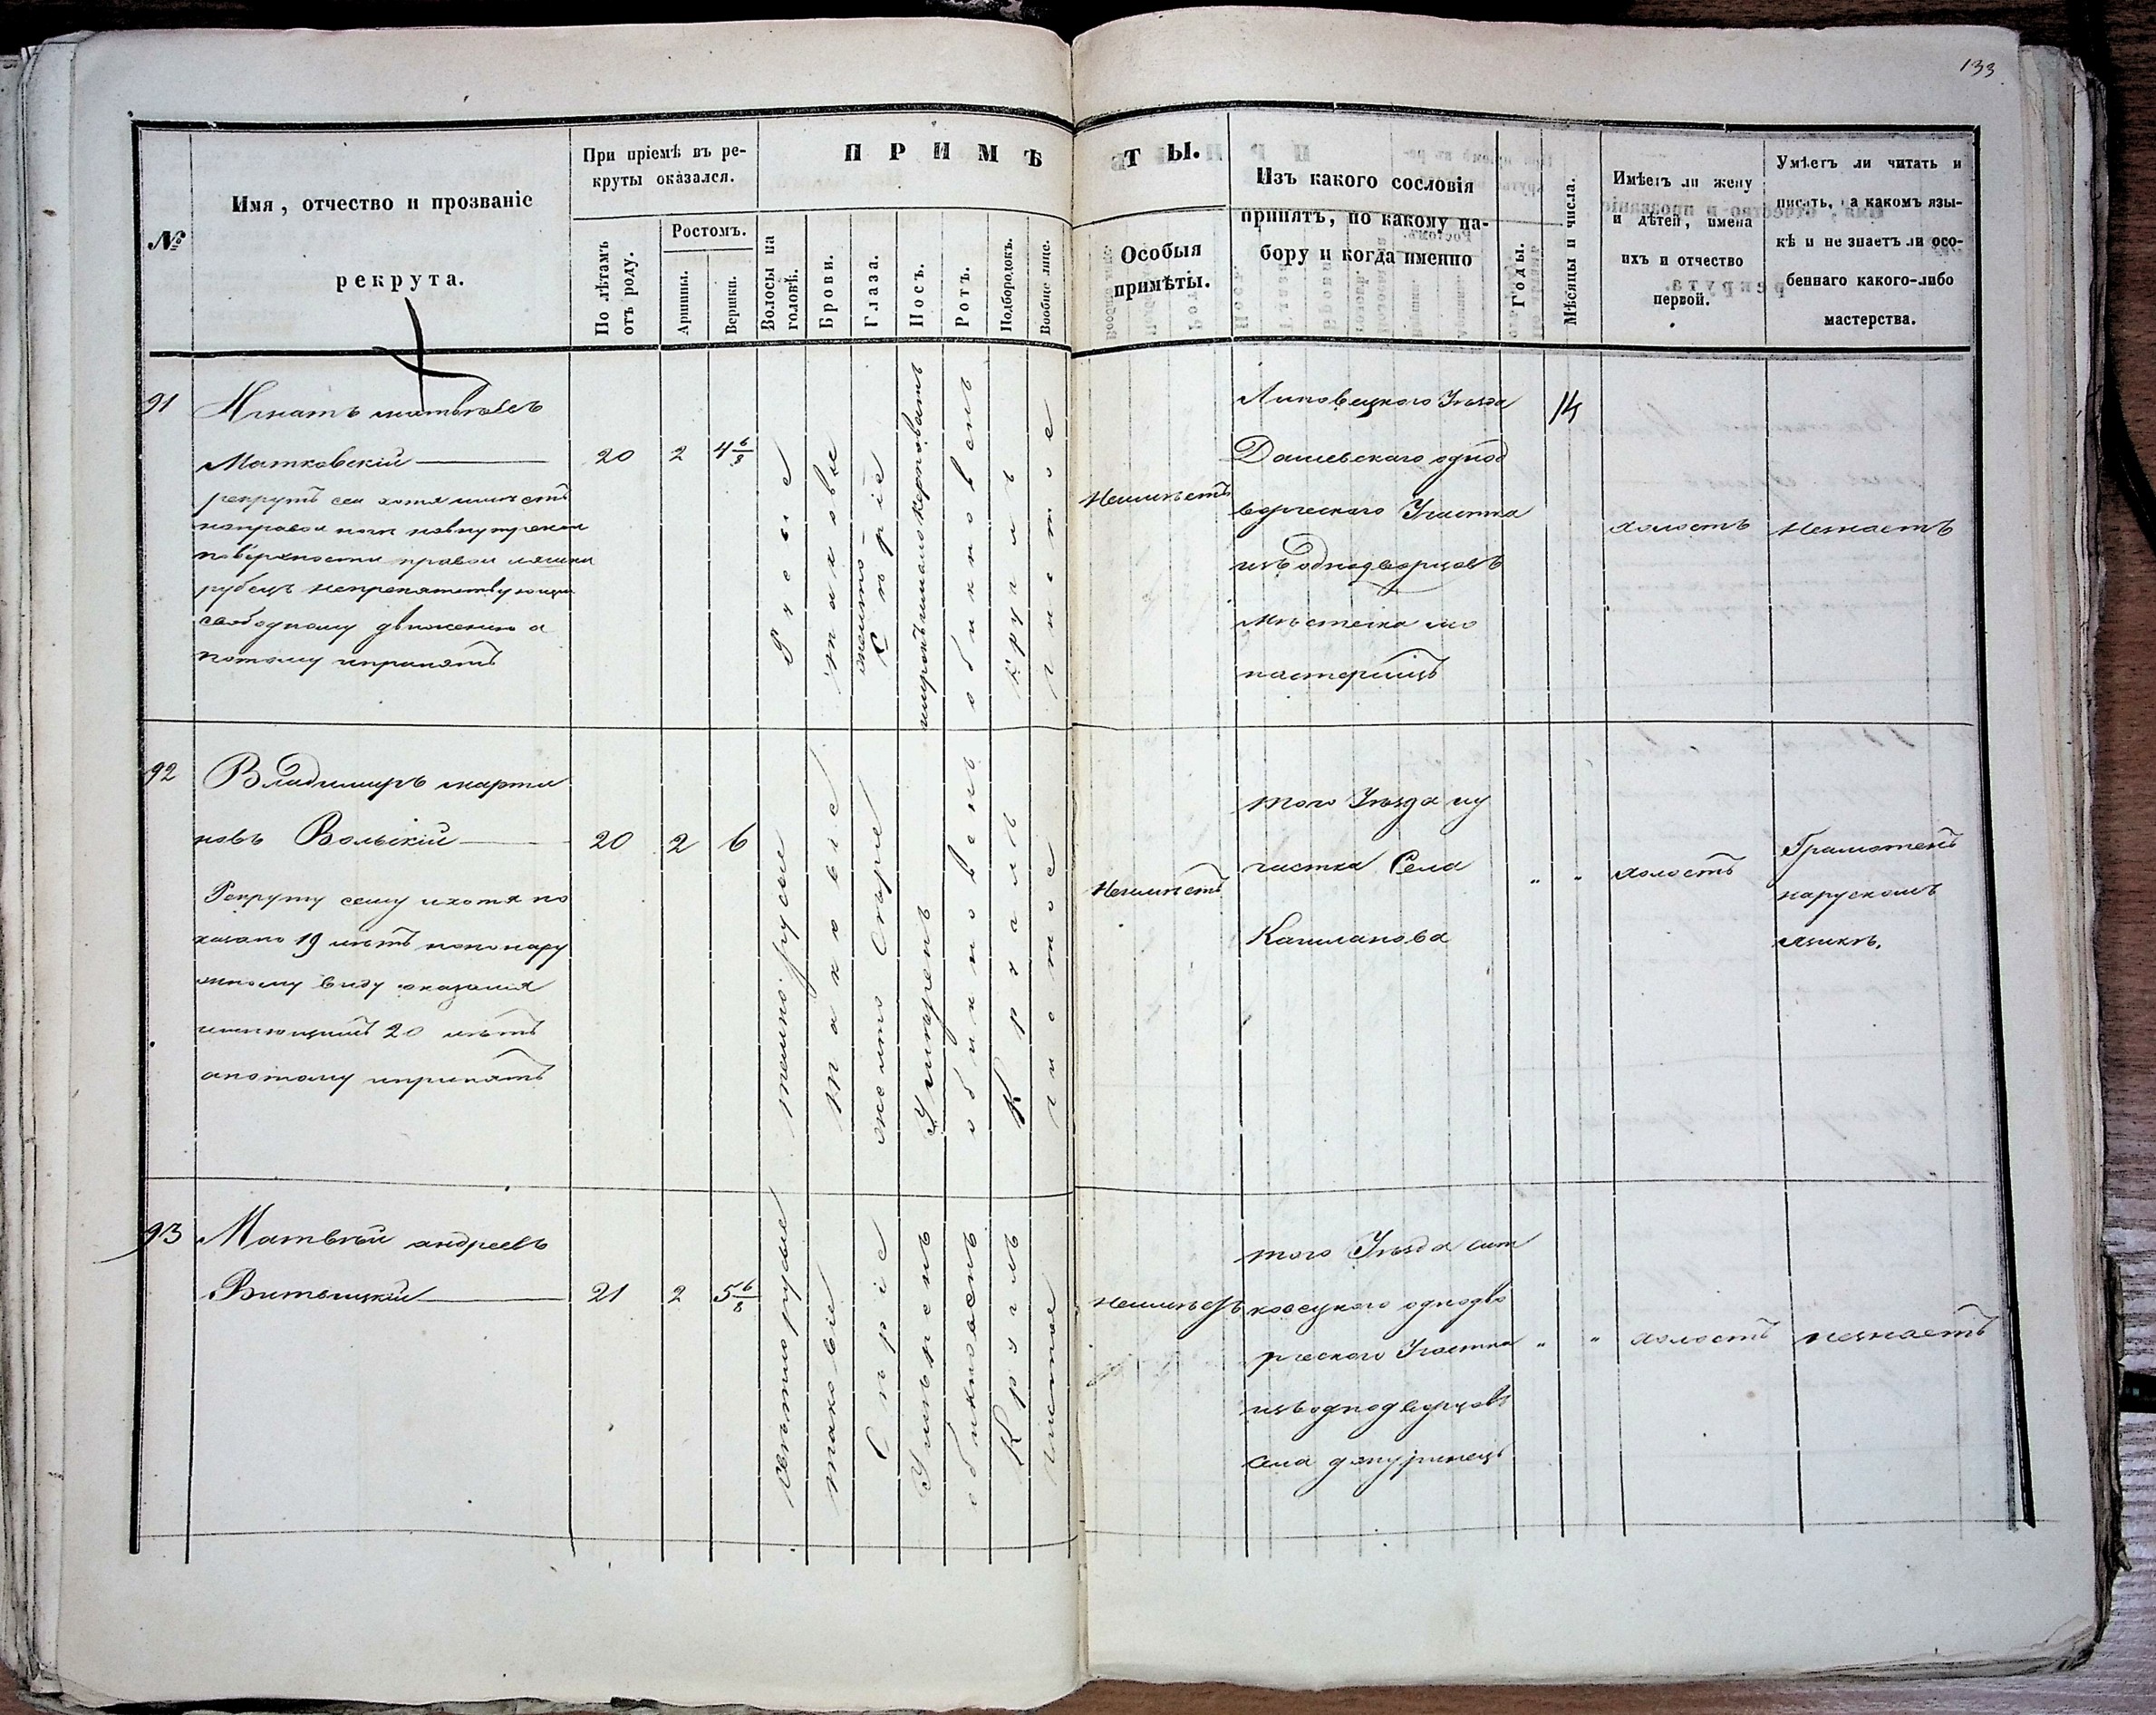 133
№
Имя, отчество и прозваніе
рекрута.
При пріемѣ въ ре-
круты оказался.
По лѣтамъ
отъ роду.
Ростомъ.
Аршины.
Вершки.
ПРИМѢ
ТЫ.
Волосы на
головѣ.
Брови.
Глаза.
Носъ.
Ротъ.
Подбородокъ.
Вообще лице.
Особыя
примѣты.
Изъ какого сословія
принятъ, по какому на-
бору и когда именно
Годы.
Мѣсяцы и числа.
Имѣетъ ли жену
и дѣтей, имена
ихъ и отчество
первой.
Умѣетъ ли читать и
писать, на какомъ язы-
кѣ и не знаетъ ли осо-
беннаго какого-либо
мастерства.
91
Игнатъ матвѣевъ
Матковскій
рекрутъ сей хотя имѣетъ
направой ноги навнутреной
поверхности правой ляшки
рубецъ непрепятствующи
свободному движению а
потому ипринятъ
20
2
4 6/8
Русые
таковые
желто-
Сѣріе
широкъ
обикновенъ
Круглъ
чистое
Неимѣетъ
Липовецкого Уѣзда
Дашевскаго однод
ворческаго Участка
изъ Однодворцовъ
Мѣстечка мо
настерищъ
14
холостъ
незнаетъ
92
Владимиръ марти
новъ Вольскій
Рекруту сему ихотя по
казано 19 лѣтъ нопонару
жному виду оказался
имеющимъ 20 лѣтъ
апотому ипринятъ
20
2
6
темно: русые
таковіе
желто Скаріе
Умѣренъ
обикновенъ
Кругалъ
чистое
Неимѣетъ
того Уѣзда иу
частка Села
Кашланова
" "
холостъ
Грамотенъ
нарускомъ
язикѣ.
93
Матвѣй андреевъ
Витвицкій
21
2
5 6/8
свѣтло русые
таковіе
Сѣріе
Умѣренъ
обикновенъ
Круглъ
чистое
неимѣетъ
того Уѣзда сит
ковецкого однодво
рческого Участка
изъоднодворцовъ
села джуринецъ
" "
холостъ
незнаетъ